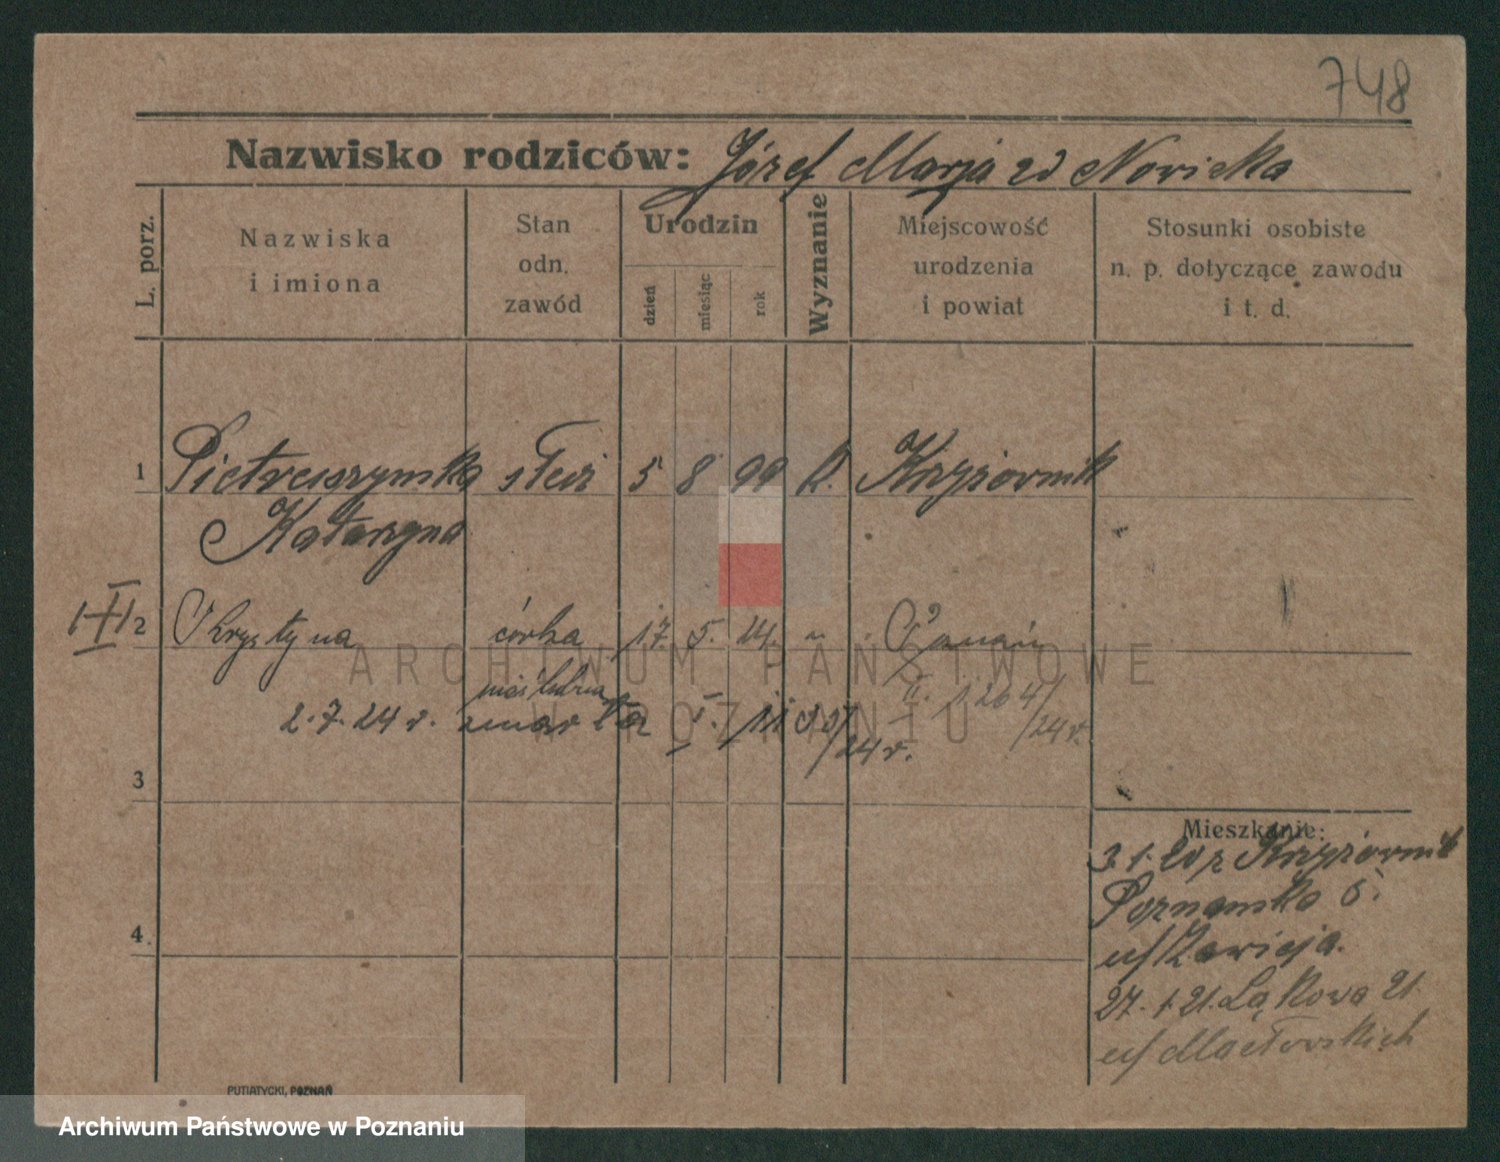 748
Nazwisko rodziców: Józef Marja zd Nowicka
L. porz.
Nazwiska
i imiona
Stan
odn.
zawód
Urodzin
dzień
miesiąc
rok
Wyznanie
Miejscowość
urodzenia
i powiat
Stosunki osobiste
n. p. dotyczące zawodu
i t. d.
1 Pietruszynska służ 5 8 99 k. Krzyżownik
Katarzyna
2 Krystyna córka 17. 5. 24. " Poznań
nieślubna
2.7.24 r. zmarła I.
/24 r.
II. 1204/
/24 r.
3
4.
Mieszkanie:
3.1.20 z Krzyżownik
Poznańska 6.
u/
27.1.21. Łąkowa 21
u/
PUTIATYCKI, POZNAŃ
ARCHIWUM PAŃSTWOWE
W POZNANIU
Archiwum Państwowe w Poznaniu